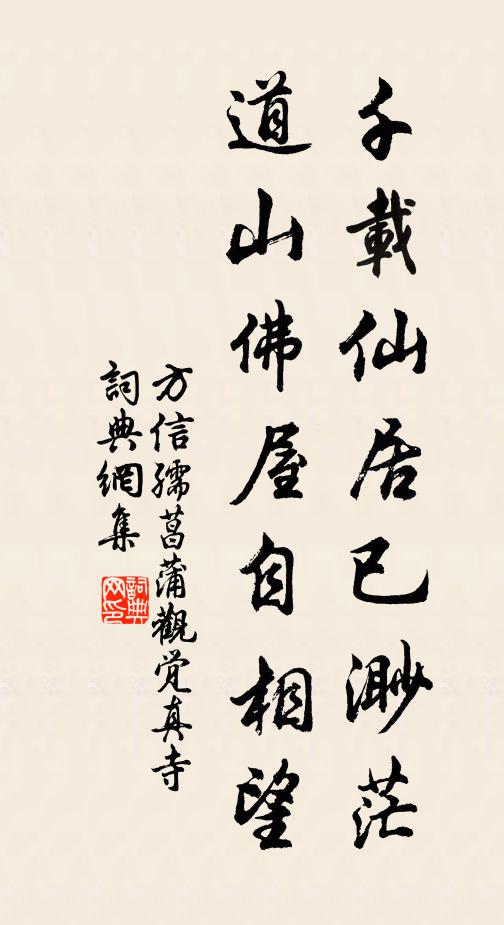 千載仙居已渺茫
道山佛屋自相望
方信孺菖蒲觀覚真寺
詞典網集
詞典網印